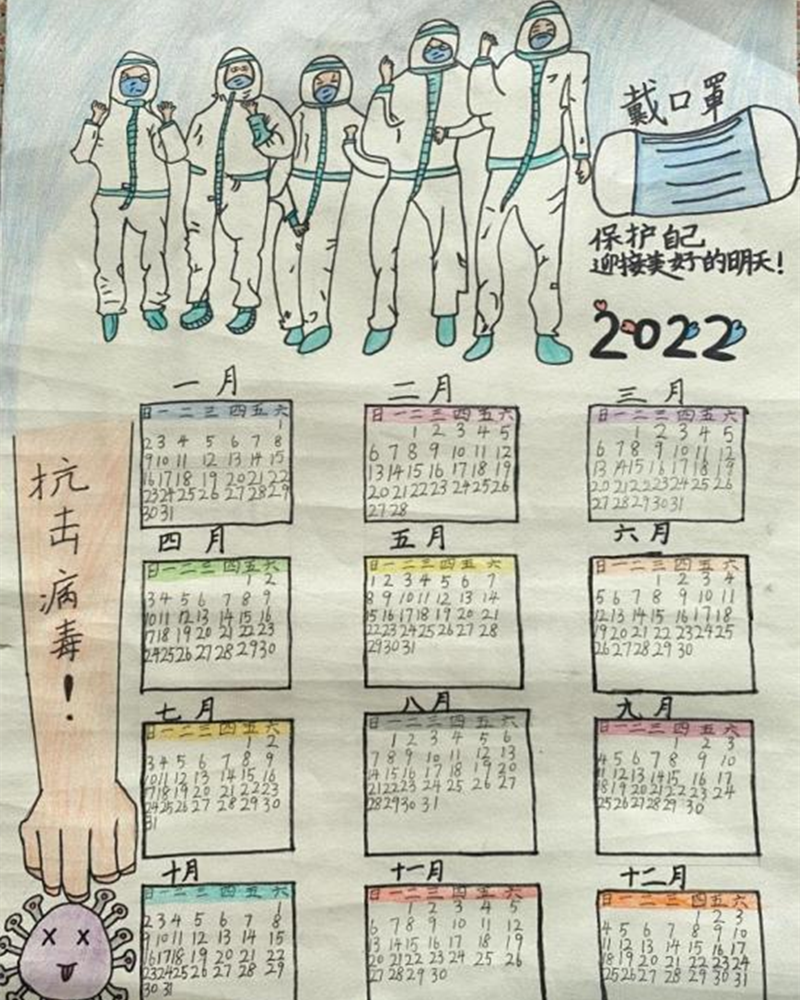 戴口罩
保护自己
迎接美好的明天！
2022
抗击病毒！
一月
日 一 二 三 四 五 六
1
2 3 4 5 6 7 8
9 10 11 12 13 14 15
16 17 18 19 20 21 22
23 24 25 26 27 28 29
30 31
二月
日 一 二 三 四 五 六
1 2 3 4 5
6 7 8 9 10 11 12
13 14 15 16 17 18 19
20 21 22 23 24 25 26
27 28
三月
日 一 二 三 四 五 六
1 2 3 4 5
6 7 8 9 10 11 12
13 14 15 16 17 18 19
20 21 22 23 24 25 26
27 28 29 30 31
四月
日 一 二 三 四 五 六
1 2
3 4 5 6 7 8 9
10 11 12 13 14 15 16
17 18 19 20 21 22 23
24 25 26 27 28 29 30
五月
日 一 二 三 四 五 六
1 2 3 4 5 6 7
8 9 10 11 12 13 14
15 16 17 18 19 20 21
22 23 24 25 26 27 28
29 30 31
六月
日 一 二 三 四 五 六
1 2 3 4
5 6 7 8 9 10 11
12 13 14 15 16 17 18
19 20 21 22 23 24 25
26 27 28 29 30
七月
日 一 二 三 四 五 六
1 2
3 4 5 6 7 8 9
10 11 12 13 14 15 16
17 18 19 20 21 22 23
24 25 26 27 28 29 30
31
八月
日 一 二 三 四 五 六
1 2 3 4 5 6
7 8 9 10 11 12 13
14 15 16 17 18 19 20
21 22 23 24 25 26 27
28 29 30 31
九月
日 一 二 三 四 五 六
1 2 3
4 5 6 7 8 9 10
11 12 13 14 15 16 17
18 19 20 21 22 23 24
25 26 27 28 29 30
十月
日 一 二 三 四 五 六
1
2 3 4 5 6 7 8
9 10 11 12 13 14 15
16 17 18 19 20 21 22
23 24 25 26 27 28 29
30 31
十一月
日 一 二 三 四 五 六
1 2 3 4 5
6 7 8 9 10 11 12
13 14 15 16 17 18 19
20 21 22 23 24 25 26
27 28 29 30
十二月
日 一 二 三 四 五 六
1 2 3
4 5 6 7 8 9 10
11 12 13 14 15 16 17
18 19 20 21 22 23 24
25 26 27 28 29 30 31